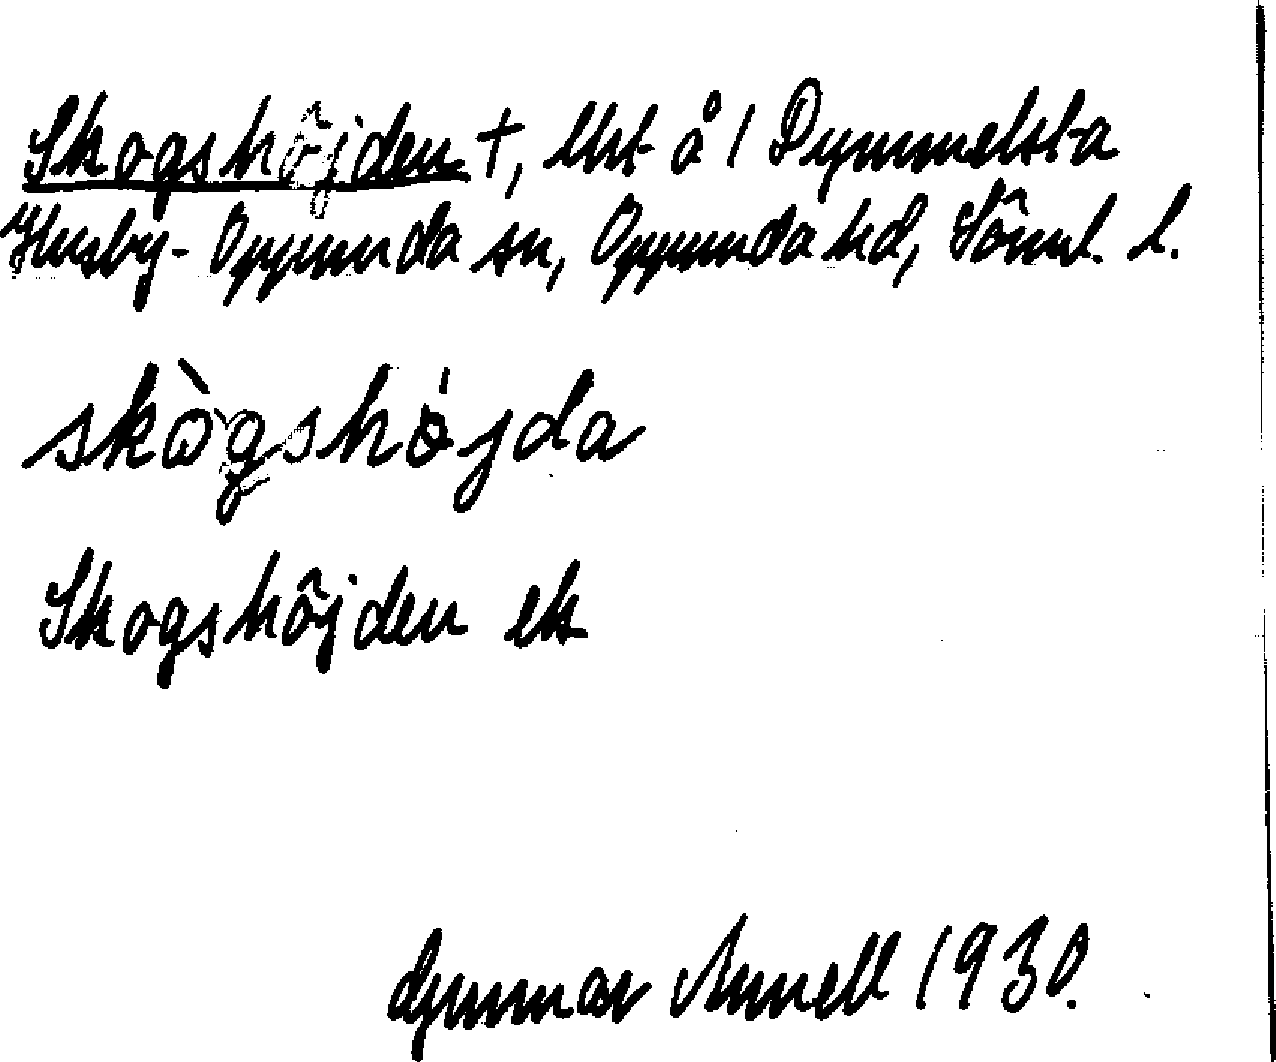 Skogshöjden †, lht å 1 Dymmelsta
Husby-Oppunda sn, Oppunda hd, Söml. l.
skògshöjda
Skogshöjden ek
Gunnar Annell 1930.